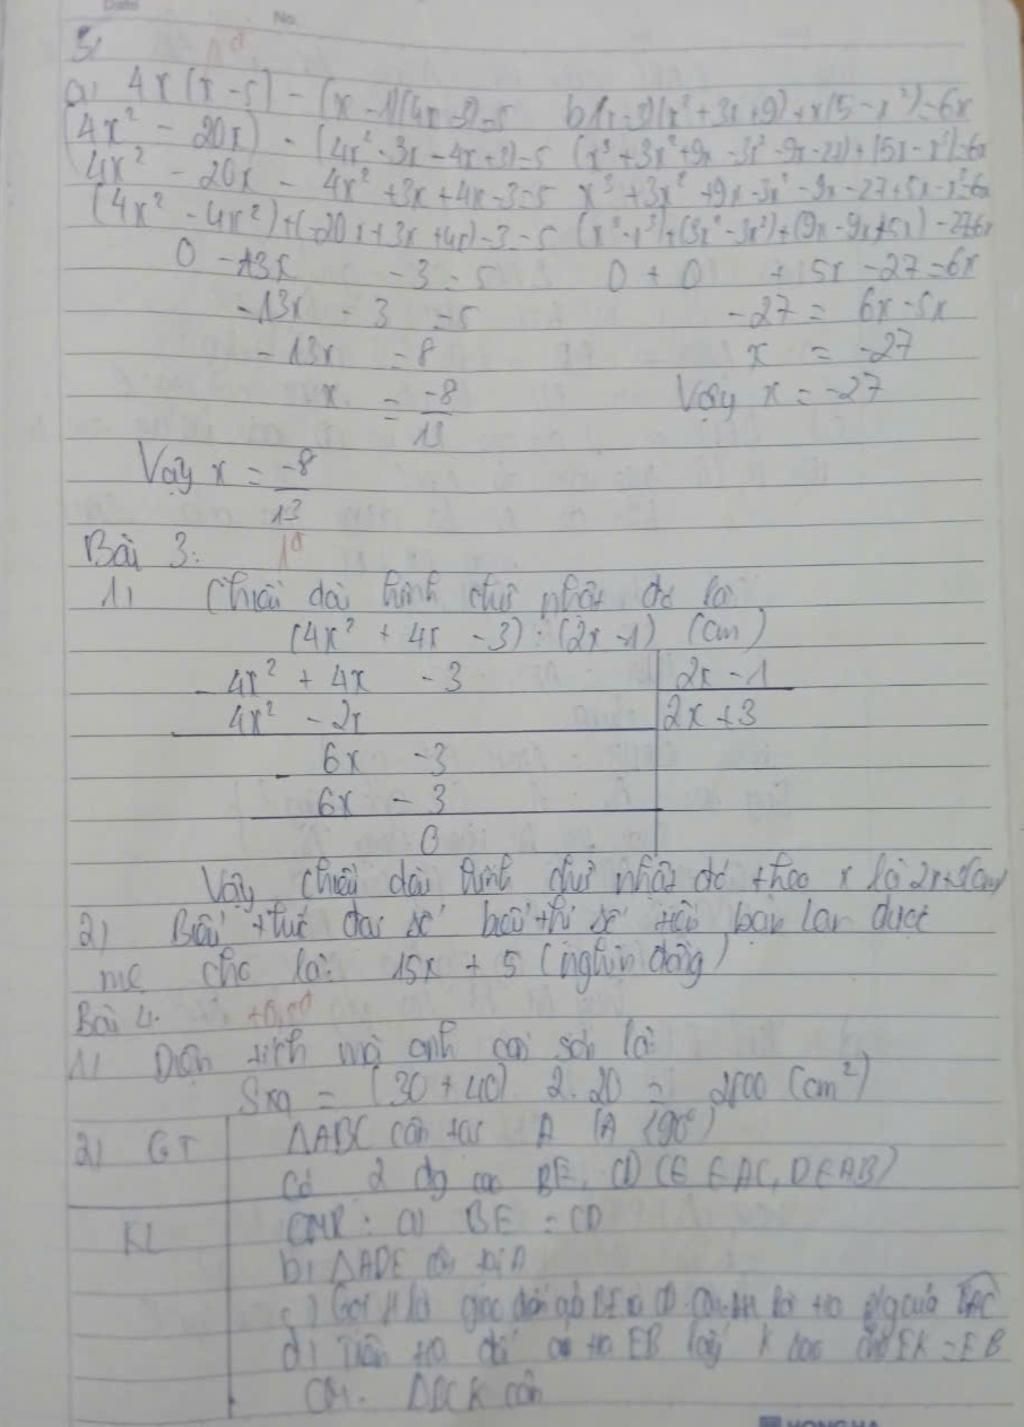 Date No.
3,
1đ
a) 4x(x - 5) - (x - 1)(4x - 3) = 5 b) (x - 3)(x² + 3x + 9) + x(5 - x²) = 6x
(4x² - 20x) - (4x² - 3x - 4x + 3) = 5 (x³ + 3x² + 9x - 3x² - 9x - 27) + (5x - x³) = 6x
4x² - 20x - 4x² + 3x + 4x - 3 = 5 x³ + 3x² + 9x - 3x² - 9x - 27 + 5x - x³ = 6x
(4x² - 4x²) + (-20x + 3x + 4x) - 3 = 5 (x³ - x³) + (3x² - 3x²) + (9x - 9x + 5x) - 27 = 6x
0 - 13x - 3 = 5 0 + 0 + 5x - 27 = 6x
-13x - 3 = 5 -27 = 6x - 5x
-13x = 8 x = -27
x = -8/13 Vậy x = -27
Vậy x = -8/13
Bài 3: 1đ
1) Chiều dài hình chữ nhật đó là
(4x² + 4x - 3) : (2x - 1) (cm)
- 4x² + 4x - 3 2x - 1
4x² - 2x 2x + 3
- 6x - 3
6x - 3
0
Vậy chiều dài hình chữ nhật đó theo x là 2x+3(cm)
2) Biểu thức đại số biểu thị số tiền bạn Lan được
mẹ cho là: 15x + 5 (nghìn đồng)
Bài 4.
1) Diện tích mà anh sơn là:
Sxq = (30 + 40) 2. 20 = 2800 (cm²)
2) GT ΔABC cân tại A (A < 90°)
Có 2 đg cao BE, CD (E ∈ AC, D ∈ AB)
KL CMR: a) BE = CD
b) ΔADE cân tại A
c) Gọi H là BE CD. AH là tia p/g của BAC
d) Trên tia đối tia EB lấy K sao cho EK = EB
CM. ΔBCK cân
HONG HA